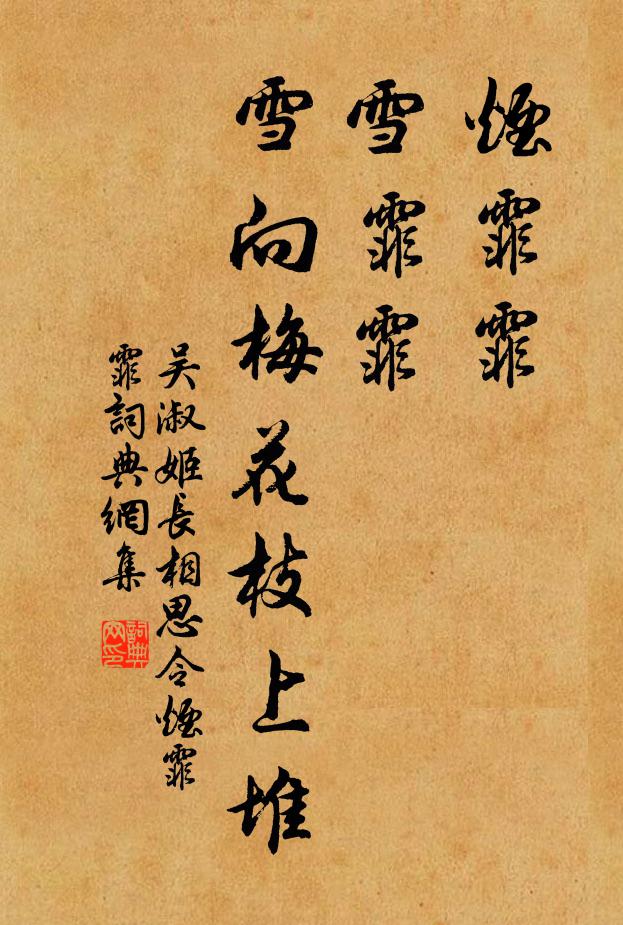 煙霏霏
雪霏霏
雪向梅花枝上堆
吴淑姬長相思令煙霏
霏詞典網集
詞典網印